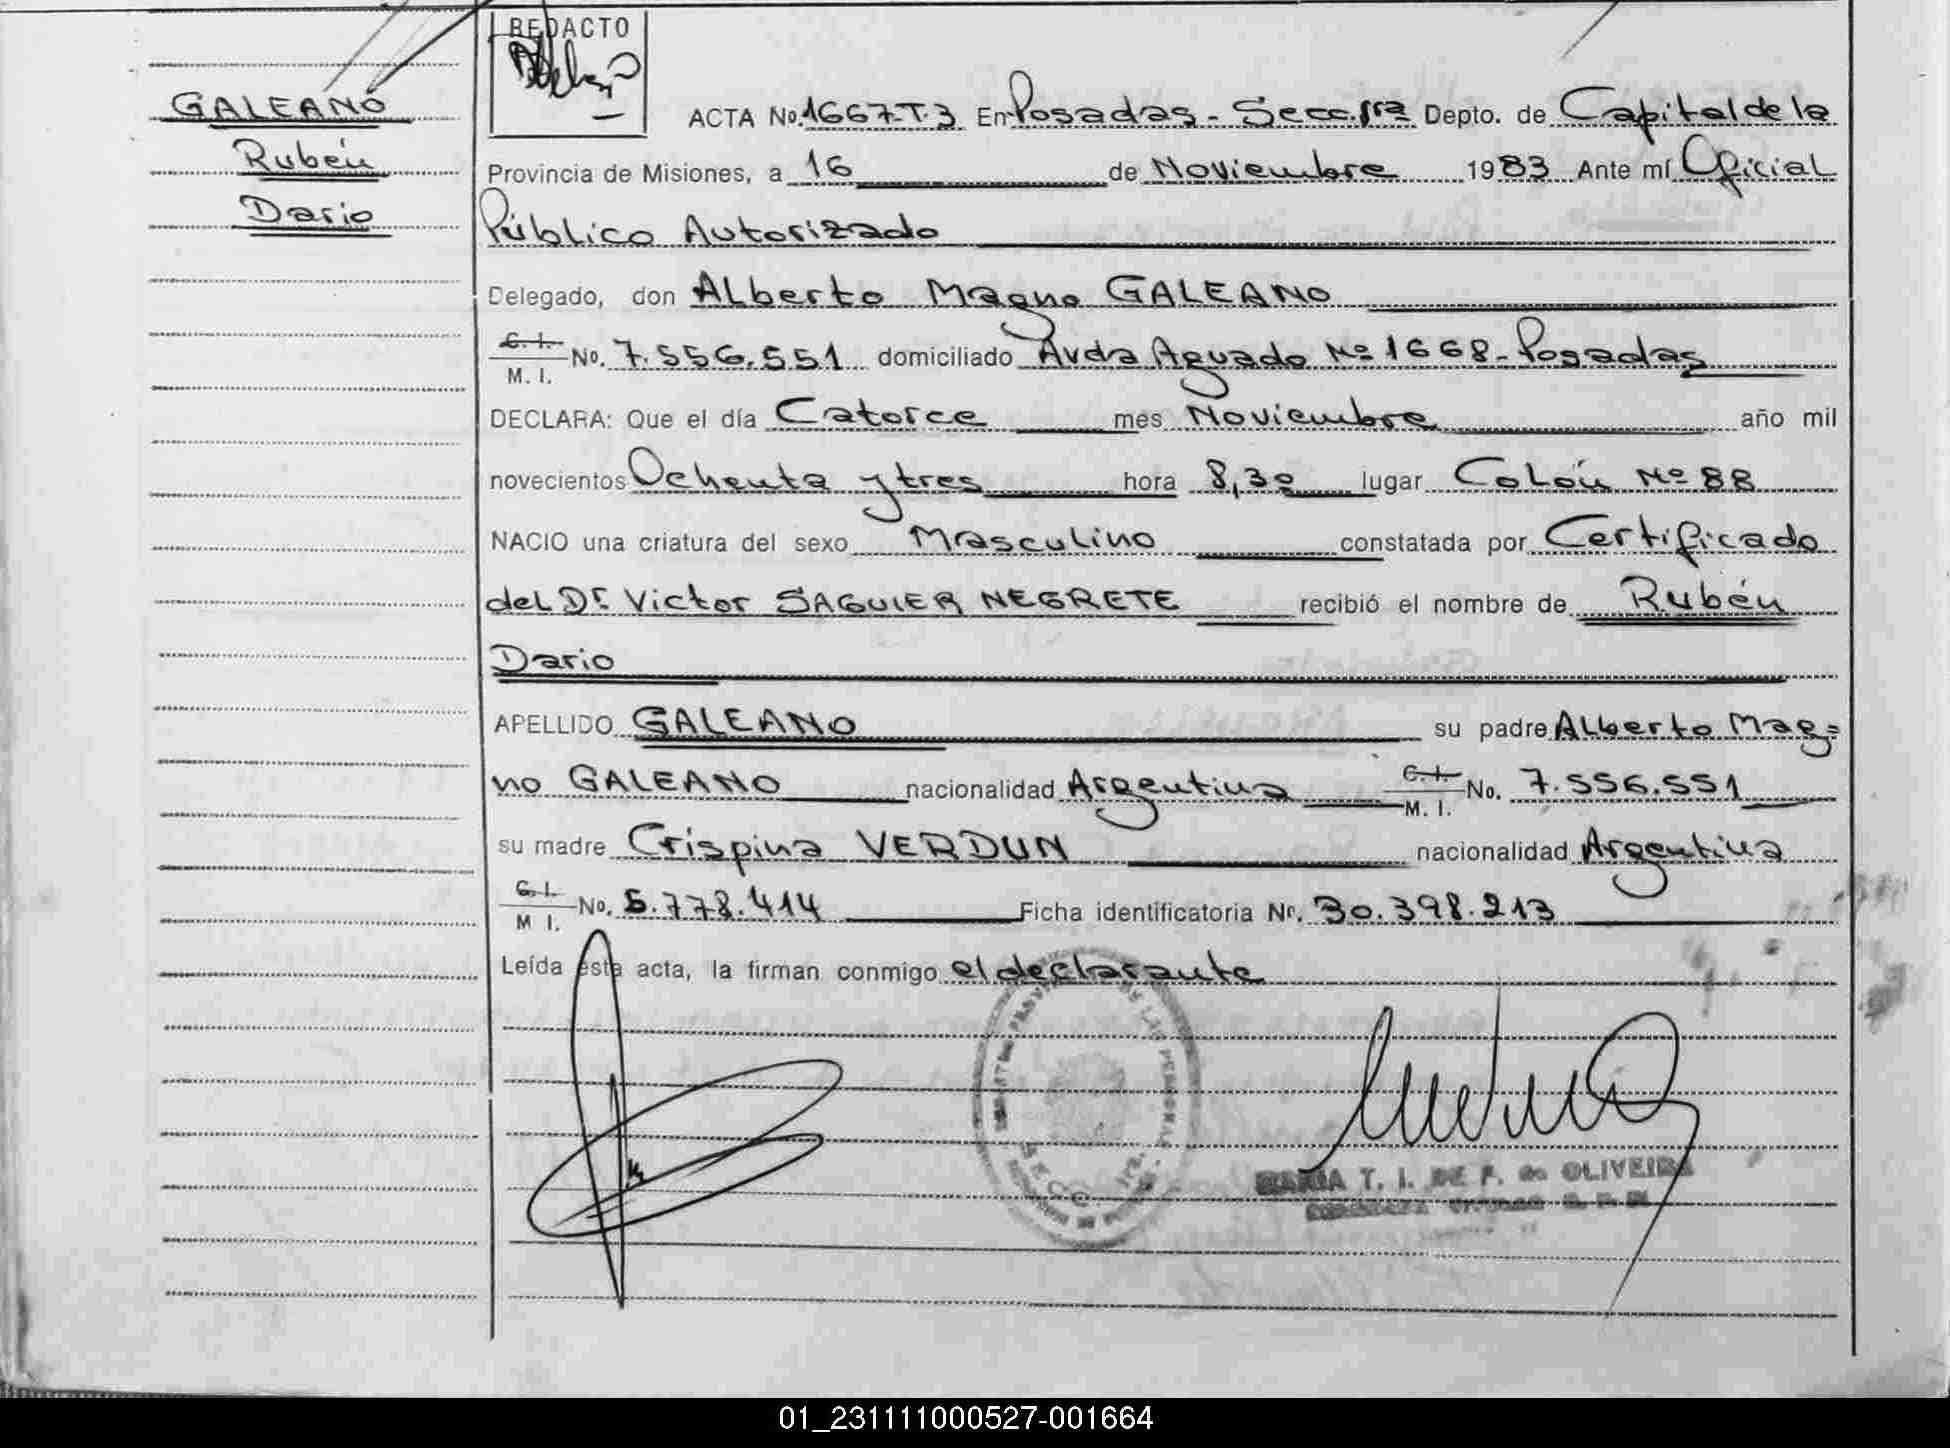 REDACTO
GALEANO
Rubén
Dario
ACTA No. 1667-T.3 En Posadas - Secc. 1ra Depto. de Capital de la
Provincia de Misiones, a 16 de Noviembre 1983 Ante mí Oficial
Público Autorizado
Delegado, don Alberto Magno GALEANO
C. I. No. 7.556.551 domiciliado Avda Aguado Nº 1668 - Posadas
M. I.
DECLARA: Que el día Catorce mes Noviembre año mil
novecientos Ochenta y tres hora 8,30 lugar Colón Nº 88
NACIO una criatura del sexo Masculino constatada por Certificado
del Dr. Victor SAGUIER NEGRETE recibió el nombre de Rubén
Dario
APELLIDO GALEANO su padre Alberto Mag=
no GALEANO nacionalidad Argentina C. I. No. 7.556.551
M. I.
su madre Crispina VERDUN nacionalidad Argentina
C. I. No. 5.778.414 Ficha identificatoria Nr. 30.398.213
M I.
Leída esta acta, la firman conmigo el declarante
MARIA T. I. DE F. de OLIVEIRA
01_231111000527-001664